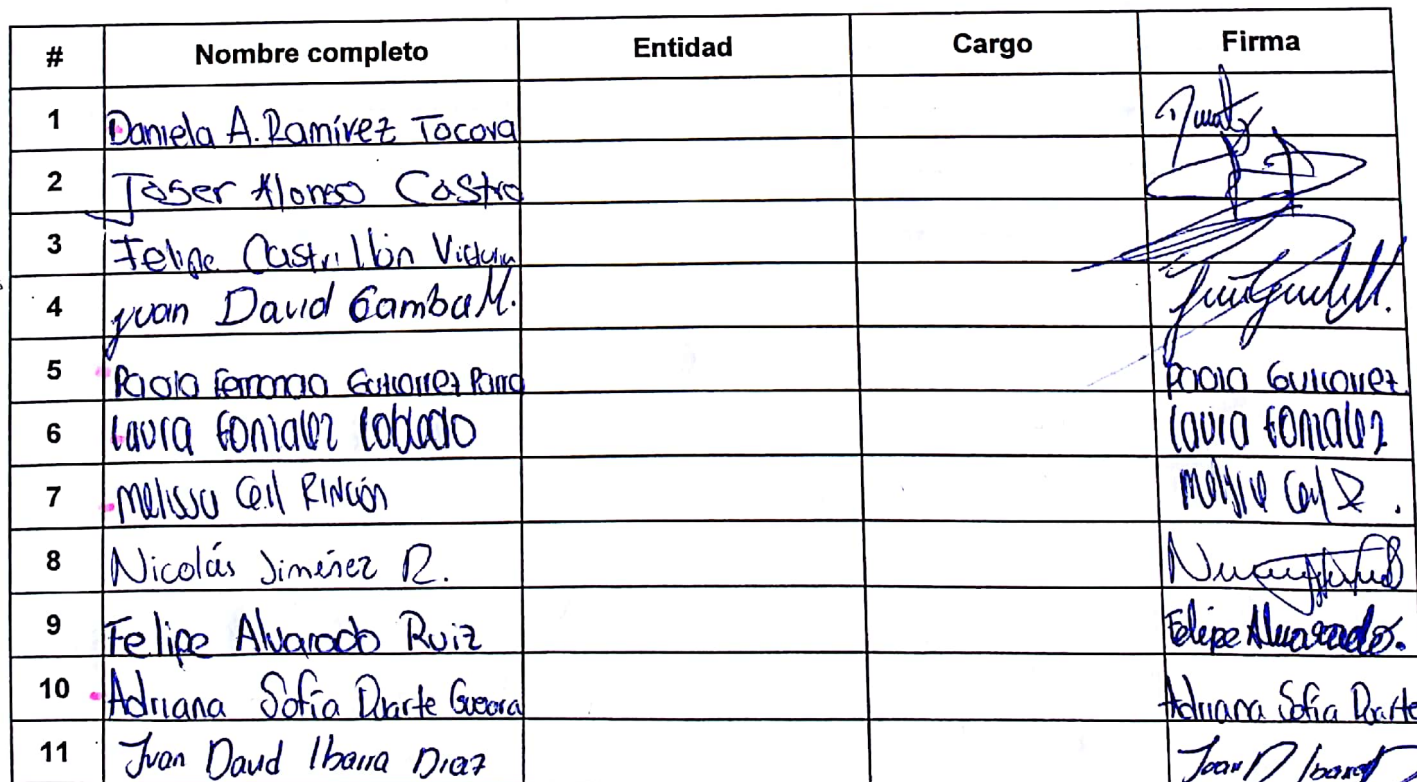 # Nombre completo Entidad Cargo Firma
1 Daniela A. Ramírez Tocova
2 Joser Alonso Castro
3 Felipe Castrillón
4 Juan David Gamba M.
5 Paola Fernanda Gutierrez Parra Paola Gutierrez
6 Laura Gonzalez Collado Laura Gonzalez
7 Melissa Cell Rincón
8 Nicolás Jiménez R.
9 Felipe Alvarado Ruiz Felipe Alvarado.
10 Adriana Sofía Duarte Guevara Adriana Sofia Duarte
11 Juan David Ibarra Diaz Juan D Ibarra